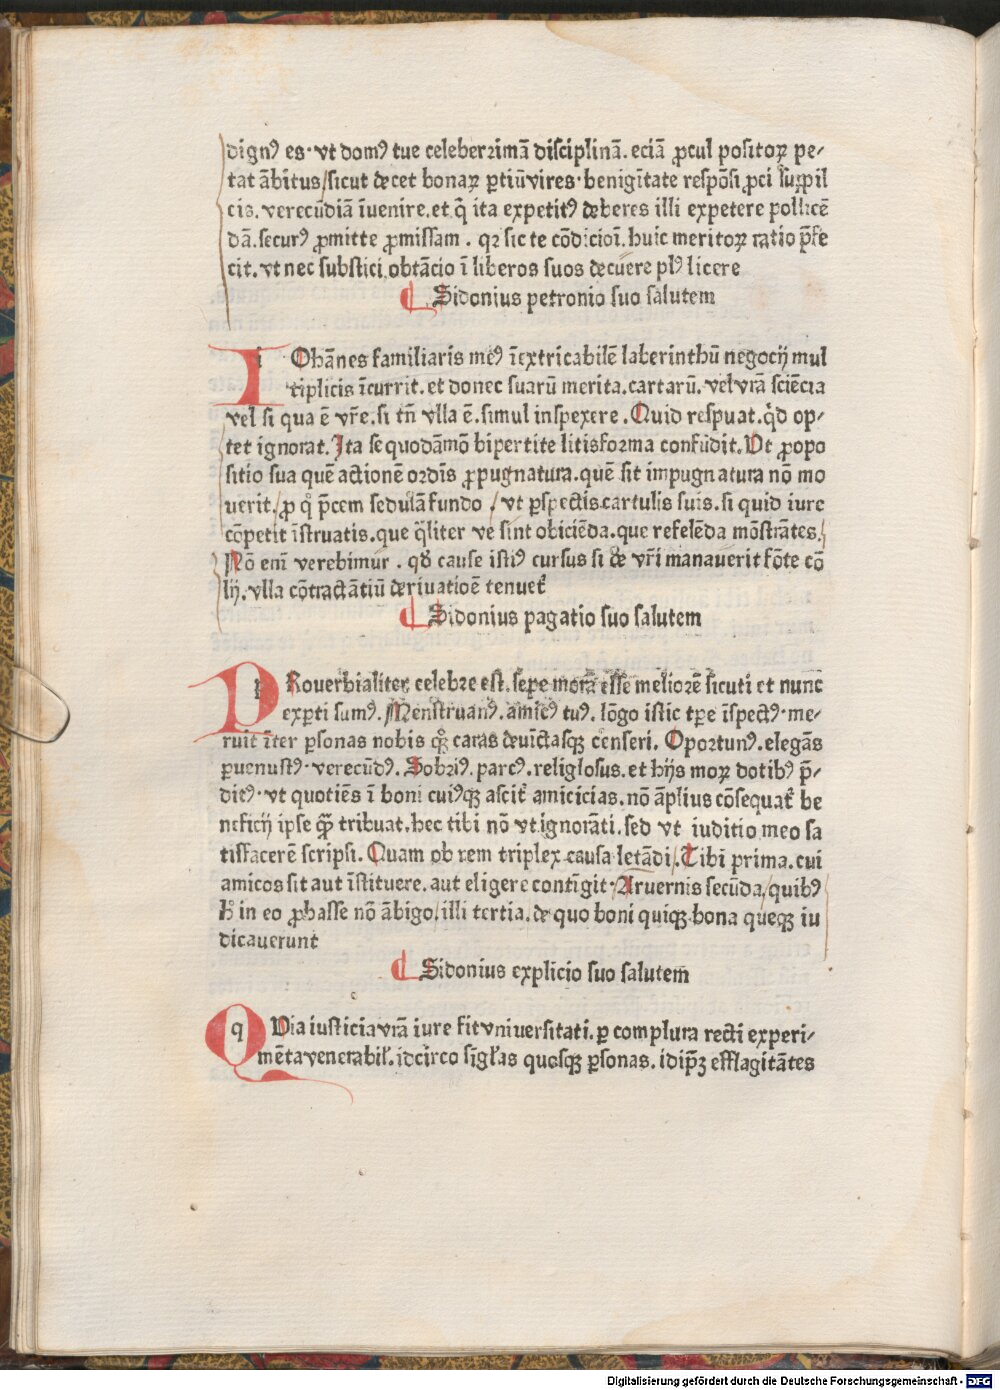 dignꝰ es· vt domꝰ tue celeberrimā disciplinā. eciā ꝓcul positoꝝ pe-
tat ābitus/sicut decet bonaꝝ ꝑtiū vires· benigītate respōsi ꝓci suꝑpil
cis. verecūdiā īuenire. et q̄ ita expetitꝰ deberes illi expetere pollicē
dā. securꝰ ꝓmitte ꝓmissam . qꝛ sic te cōdicioī. huic meritoꝝ ratio p̄fe
cit. vt nec substici. obtācio ī liberos suos decuere plꝰ licere
¶ Sidonius petronio suo salutem
i Ohānes familiaris meꝰ īextricabilē laberinthū negocij mul
tiplicis īcurrit. et donec suarū merita. cartarū. vel vrā sciēcia
vel si qua ē vr̄e. si tn̄ vlla ē. simul inspexere . Quid respuat. qd̄ op-
tet ignorat. Ita se quodāmō bipertite litis forma confūdit. Vt ꝓpo
sitio sua quē actionē ordīs ꝓpugnatura. quē sit impugnatura nō mo
uerit / ꝓ qͦ p̄cem sedulā fundo / vt ꝑspectis cartulis suis. si quid iure
cōpetit īstruatis. que q̄liter ve sint obiciēda. que refelēda mōstrātes.
Nō enī verebimur . qd̄ cause istiꝰ cursus si de vr̄i manauerit fōte cō
lij. vlla cōtractātiū deriuatioē tenuet᷑
¶ Sidonius pagatio suo salutem
p Rouerbialiter celebre est. sepe morā esse meliorē sicuti et nunc
exꝑti sumꝰ. Menstruanꝰ. amicꝰ tuꝰ. lōgo istic tꝑe īspectꝰ· me-
ruit īter ꝑsonas nobis qͦꝫ caras deuīctasqꝫ cēnseri. Oportunꝰ. elegās
ꝑuenustꝰ· verecūdꝰ. Sobriꝰ. parcꝰ. religlosus. et hijs moꝝ dotibꝰ p̄-
ditꝰ· vt quotiēs ī boni cuiꝰqꝫ ascit᷑ amicicias. nō āplius cōsequat᷑ be
neficij ipse qꝫ̄ tribuat. hec tibi nō vt ignorāti. sed vt iuditio meo sa
tisfacerē scripsi. Quam ob rem triplex causa letādi/. Tibi prima. cui
amicos sit aut īstituere. aut eligere contīgit· Aruernis secūda/ quibꝰ
hͦ in eo ꝓbasse nō ābigo/. illi tertia. de quo boni quiqꝫ bona queqꝫ iu
dicauerunt
¶ Sidonius explicio suo salutem̄
q Via iusticia vrā iure fit vniuersitati. ꝑ complura recti experi-
mēta venerabił. idcirco sīgłas quosqꝫ ꝑsonas. id ip̄ꝫ efflagitātes
Digitalisierung gefördert durch die Deutsche Forschungsgemeinschaft - DFG